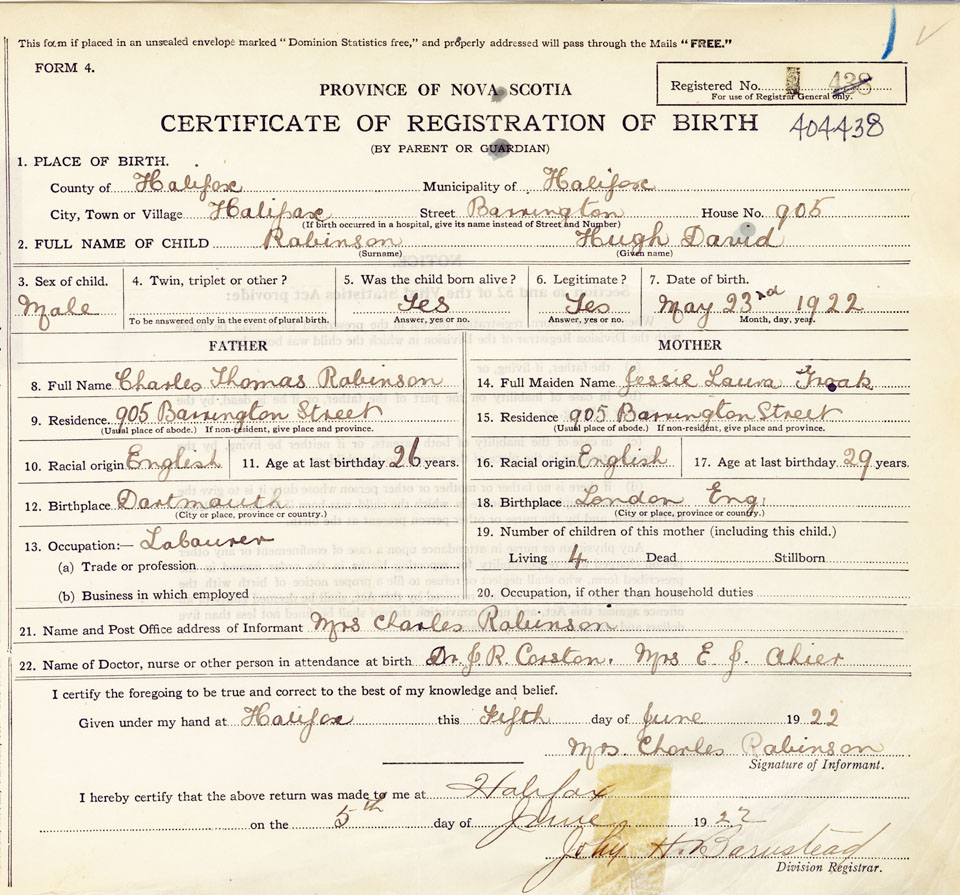 This form if placed in an unsealed envelope marked "Dominion Statistics free," and properly addressed will pass through the Mails "FREE."
FORM 4.
PROVINCE OF NOVA SCOTIA
Registered No. 438
For use of Registrar General only.
CERTIFICATE OF REGISTRATION OF BIRTH 404438
(BY PARENT OR GUARDIAN)
1. PLACE OF BIRTH.
County of Halifax Municipality of Halifax
City, Town or Village Halifax Street Barrington House No. 905
(If birth occurred in a hospital, give its name instead of Street and Number)
2. FULL NAME OF CHILD Robinson Hugh David
(Surname) (Given name)
3. Sex of child. 4. Twin, triplet or other? 5. Was the child born alive? 6. Legitimate? 7. Date of birth.
Male Yes Yes May 23rd 1922
To be answered only in the event of plural birth. Answer, yes or no. Answer, yes or no. Month, day, year.
FATHER MOTHER
8. Full Name Charles Thomas Robinson 14. Full Maiden Name Jessie Laura
9. Residence 905 Barrington Street 15. Residence 905 Barrington Street
(Usual place of abode.) If non-resident, give place and province. (Usual place of abode.) If non-resident, give place and province.
10. Racial origin English 11. Age at last birthday 26 years. 16. Racial origin English 17. Age at last birthday 29 years.
12. Birthplace Dartmouth 18. Birthplace London Eng.
(City or place, province or country.) (City or place, province or country.)
13. Occupation:— Labourer 19. Number of children of this mother (including this child.)
(a) Trade or profession Living 4 Dead Stillborn
(b) Business in which employed 20. Occupation, if other than household duties
21. Name and Post Office address of Informant Mrs Charles Robinson
22. Name of Doctor, nurse or other person in attendance at birth Dr. J. R. Corston. Mrs E. J. Ahier
I certify the foregoing to be true and correct to the best of my knowledge and belief.
Given under my hand at Halifax this Fifth day of June 1922
Mrs. Charles Robinson
Signature of Informant.
I hereby certify that the above return was made to me at Halifax
on the 5th day of June 1922
John H. Barnstead
Division Registrar.